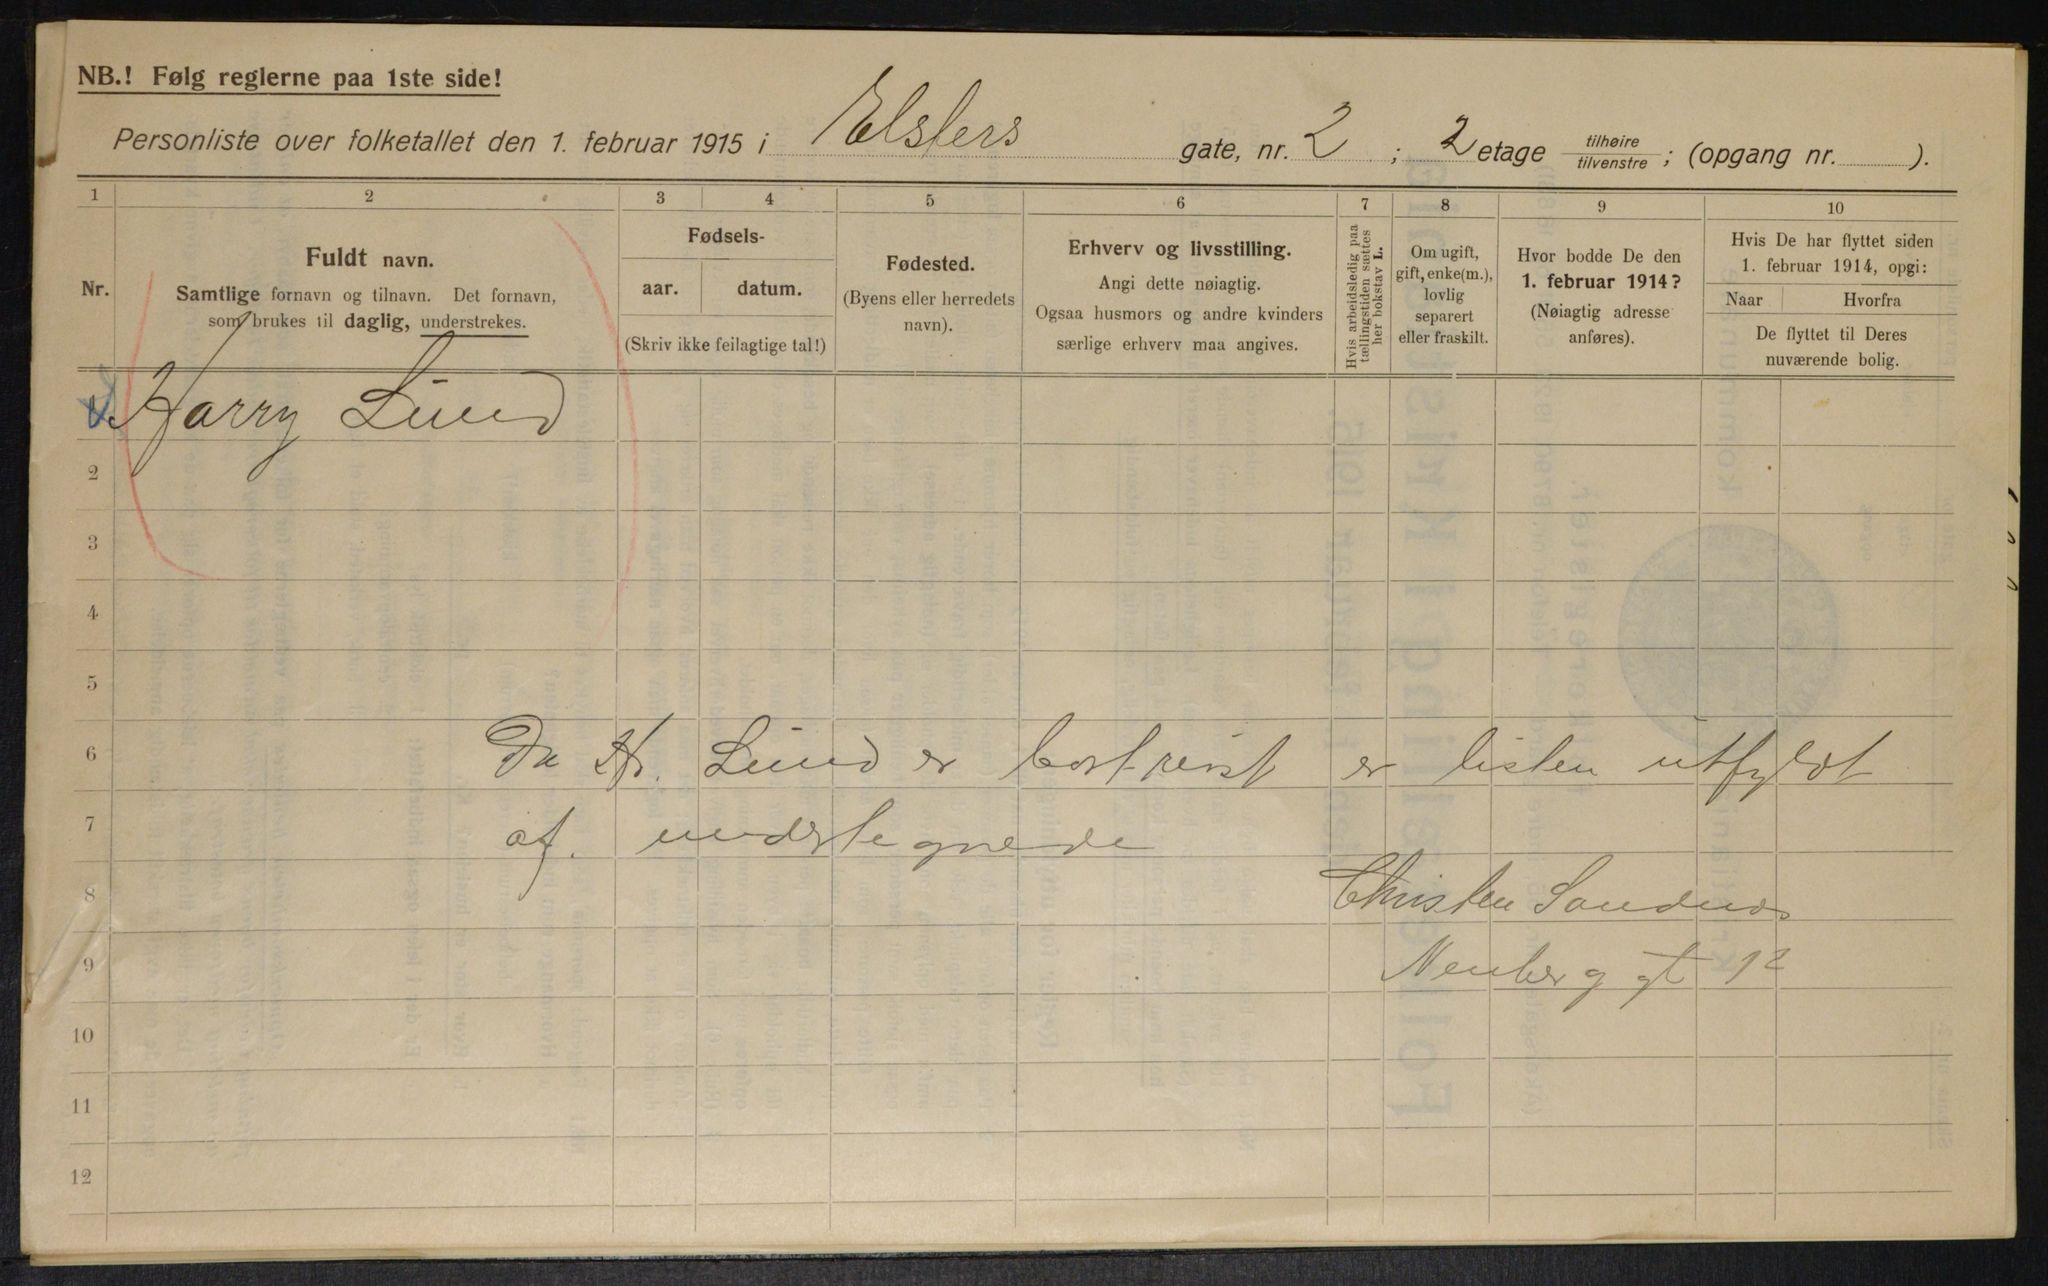 NB.! Følg reglerne paa 1ste side!
Personliste over folketallet den 1. februar 1915 i Elsters gate, nr. 2 ; 2 etage tilhøire tilvenstre ; (opgang nr. ).
1 2 3 4 5 6 7 8 9 10
Nr.
Fuldt navn.
Samtlige fornavn og tilnavn. Det fornavn,
som brukes til daglig, understrekes.
Fødsels-
aar. datum.
(Skriv ikke feilagtige tal!)
Fødested.
(Byens eller herredets
navn).
Erhverv og livsstilling.
Angi dette nøiagtig.
Ogsaa husmors og andre kvinders
særlige erhverv maa angives.
Hvis arbeidsledig paa
tællingstiden sættes
her bokstav L.
Om ugift,
gift, enke(m.),
lovlig
separert
eller fraskilt.
Hvor bodde De den
1. februar 1914?
(Nøiagtig adresse
anføres).
Hvis De har flyttet siden
1. februar 1914, opgi:
Naar Hvorfra
De flyttet til Deres
nuværende bolig.
Harry Lund
2
3
4
5
6 Da Hr. Lund er bortreist er listen utfyldt
7 af. undertegnede
8 Christen Sandnes
9 Neuberg gt 12
10
11
12